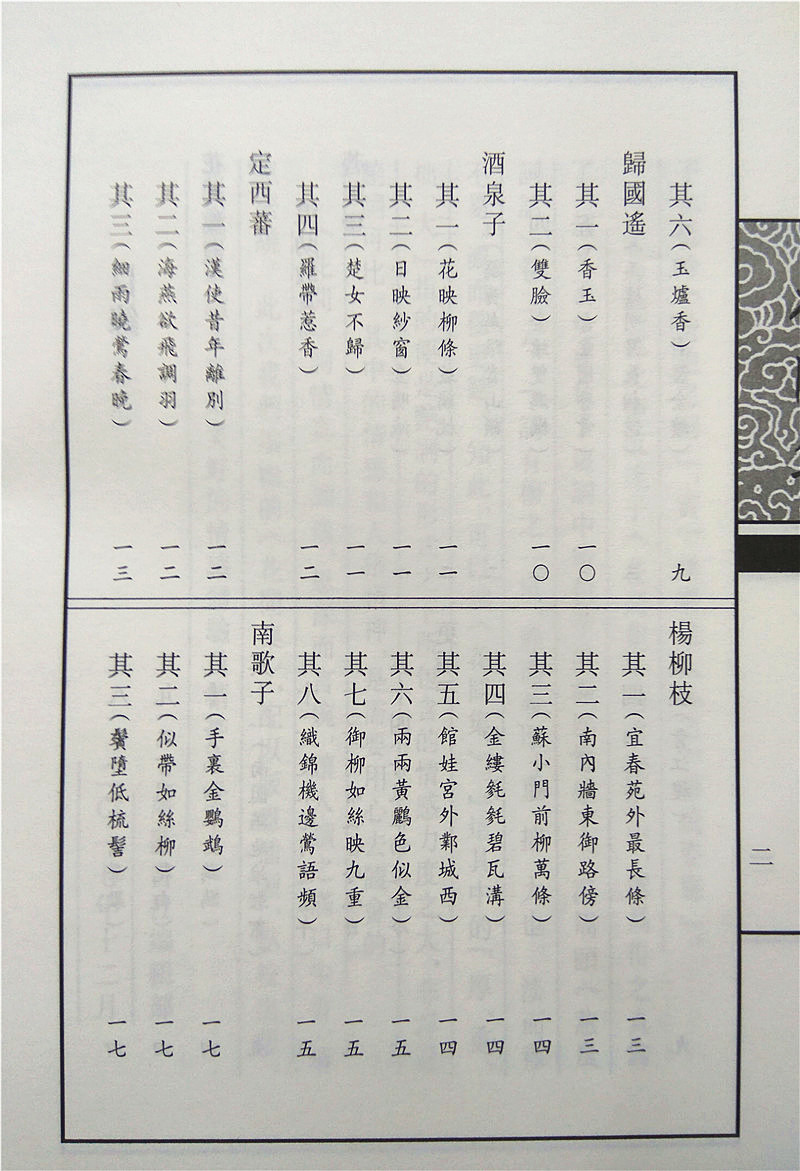 其六（玉爐香） 九
歸國遙
其一（香玉） 一〇
其二（雙臉） 一〇
酒泉子
其一（花映柳條） 一一
其二（日映紗窗） 一一
其三（楚女不歸） 一一
其四（羅帶惹香） 一二
定西蕃
其一（漢使昔年離別） 一二
其二（海燕欲飛調羽） 一二
其三（細雨曉鶯春晚） 一三
楊柳枝
其一（宜春苑外最長條） 一三
其二（南內牆東御路傍） 一三
其三（蘇小門前柳萬條） 一四
其四（金縷毿毿碧瓦溝） 一四
其五（館娃宮外鄴城西） 一四
其六（兩兩黃鸝色似金） 一五
其七（御柳如絲映九重） 一五
其八（織錦機邊鶯語頻） 一五
南歌子
其一（手裏金鸚鵡） 一七
其二（似帶如絲柳） 一七
其三（鬢墮低梳髻） 一七
二